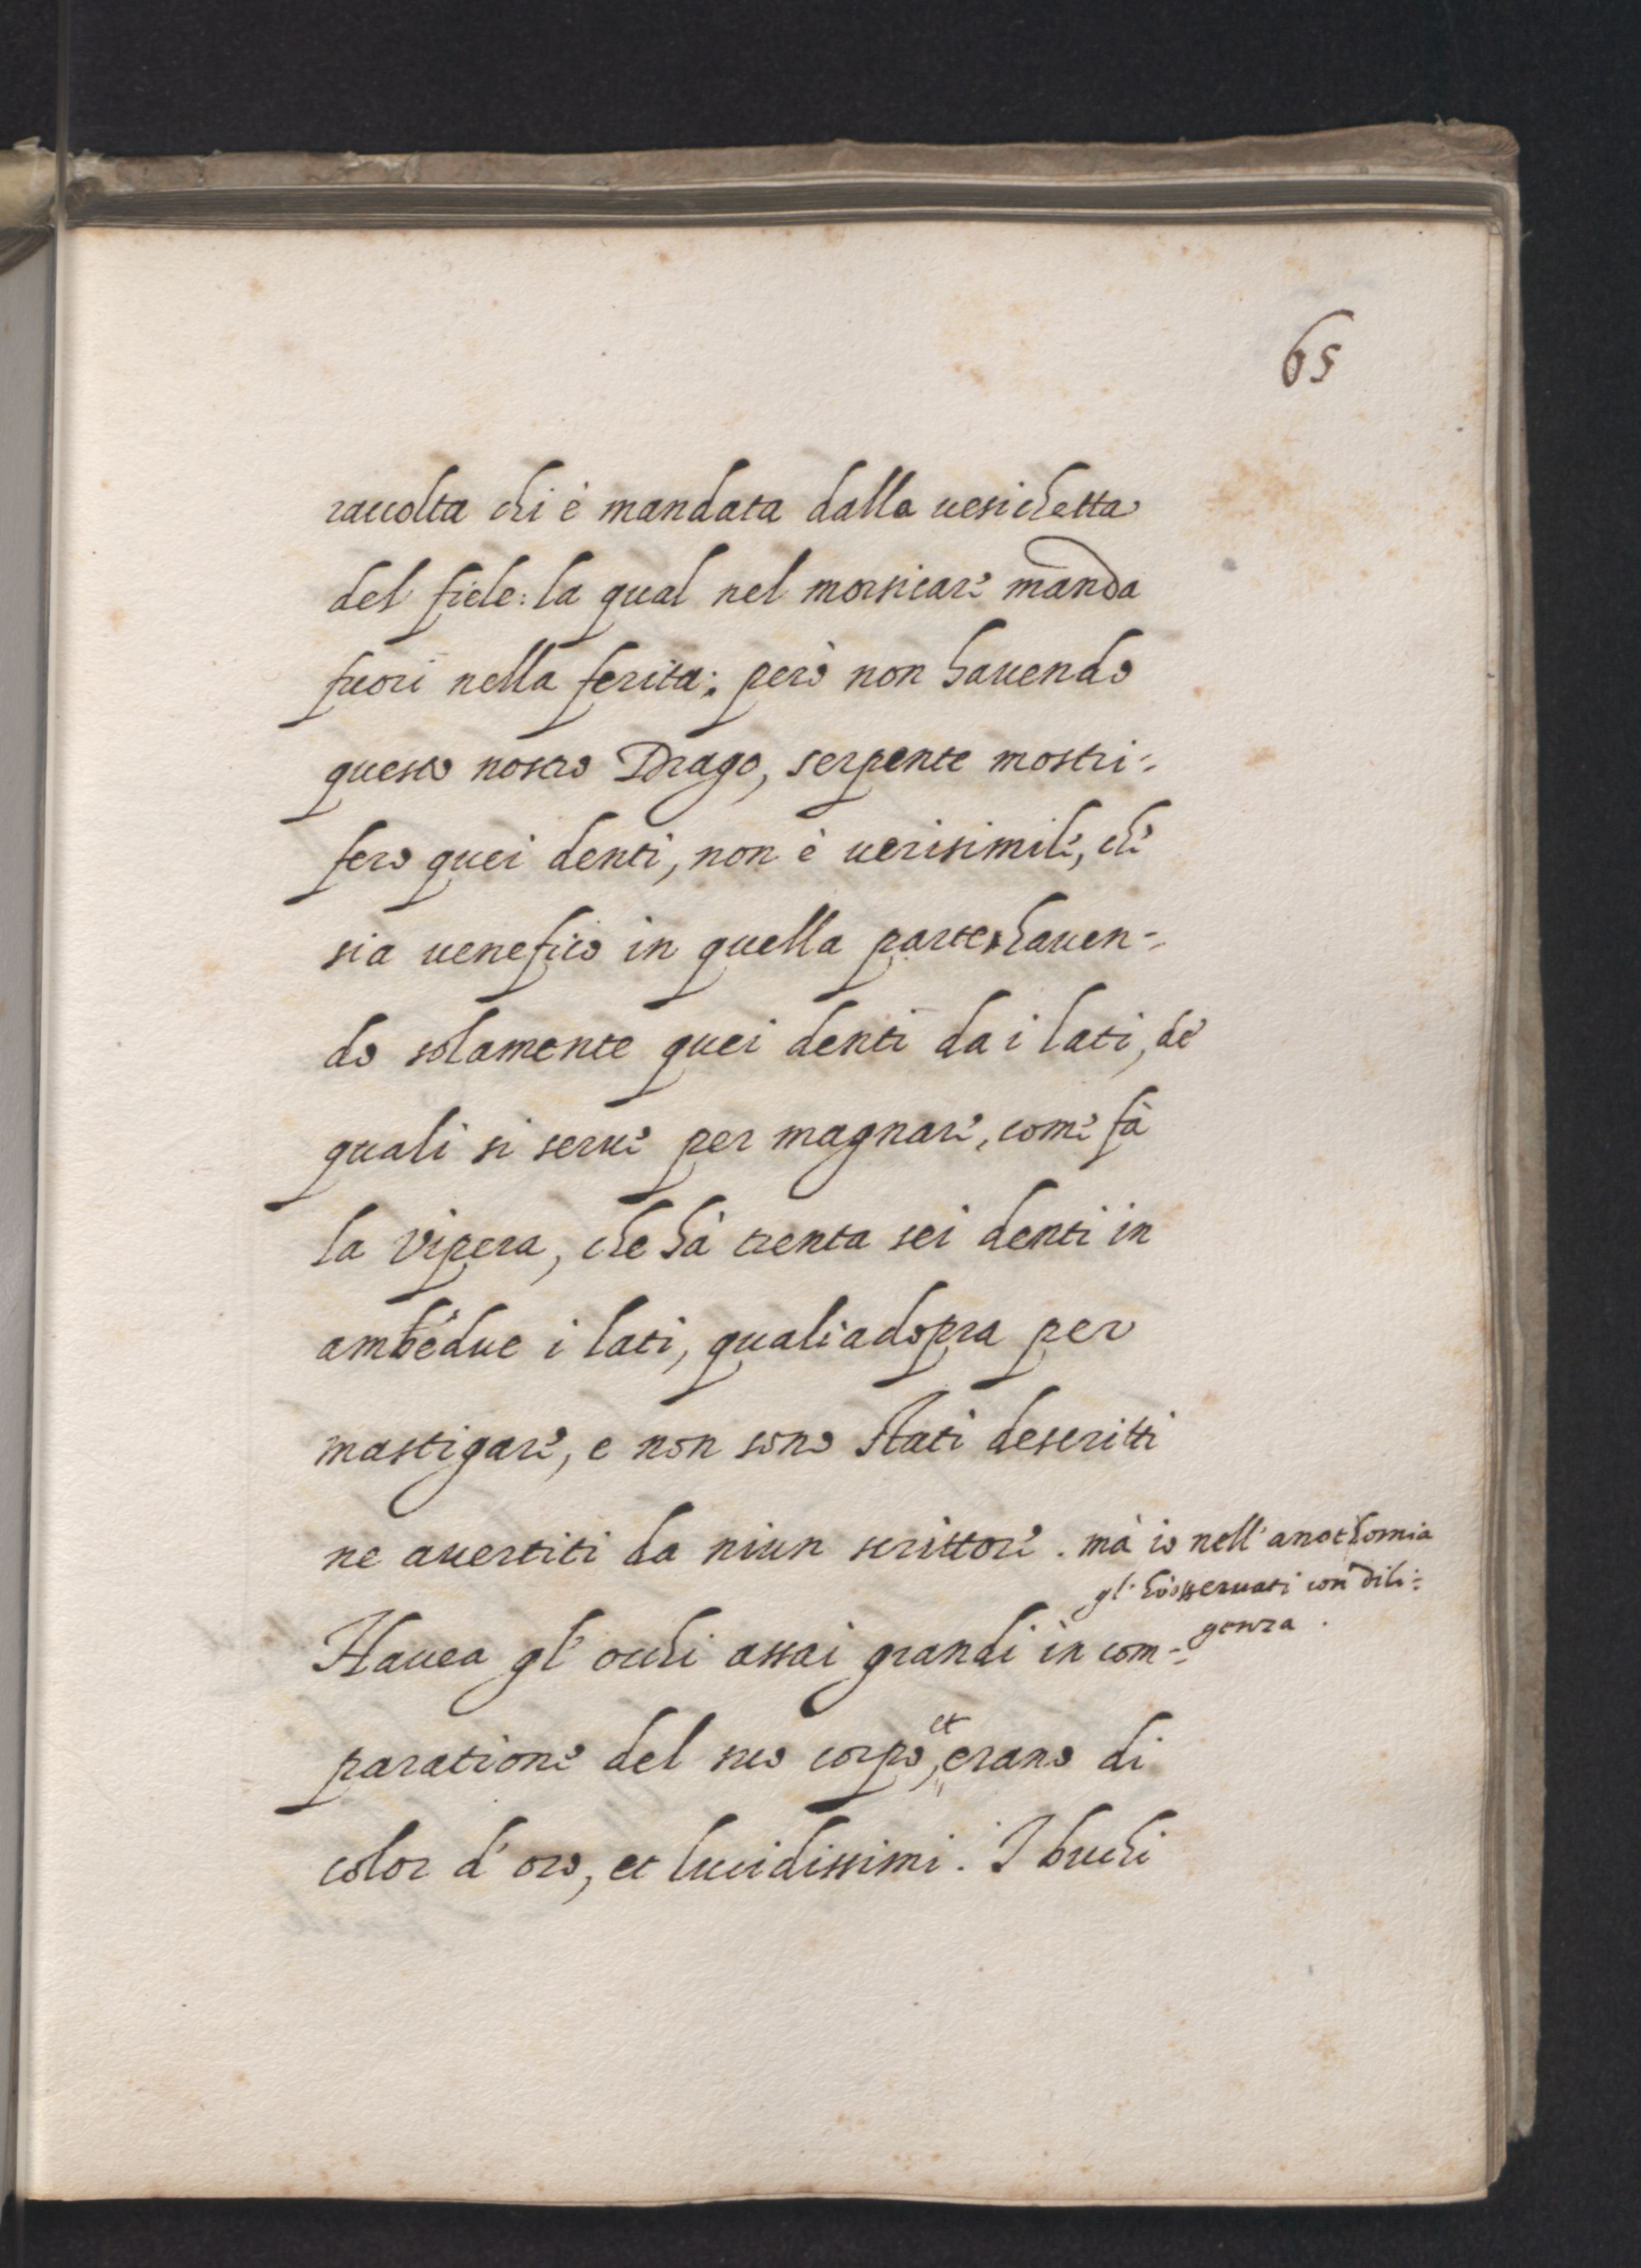 65
raccolta chi è mandata dalla uesichetta
del fiele: la qual nel morsicare manda
fuori nella ferita: però non hauendo
questo nostro Drago, serpente mostri=
fero quei denti, non è uerisimile, che
sia uenefico in quella parte, hauen=
do solamente quei denti da i lati, de
quali si serue per magnare, come fà
la vipera, che hà trenta sei denti in
ambedue i lati, quali adopra per
mastigare, e non sono stati descritti
ne auertiti da niun scrittore. mà io nell' anothomia
gl' hò osseruati con dili=
genza.
Hauea gl' occhi assai grandi in com=
paratione del suo corpo, et erano di
color d' oro, et lucidissimi. I buchi